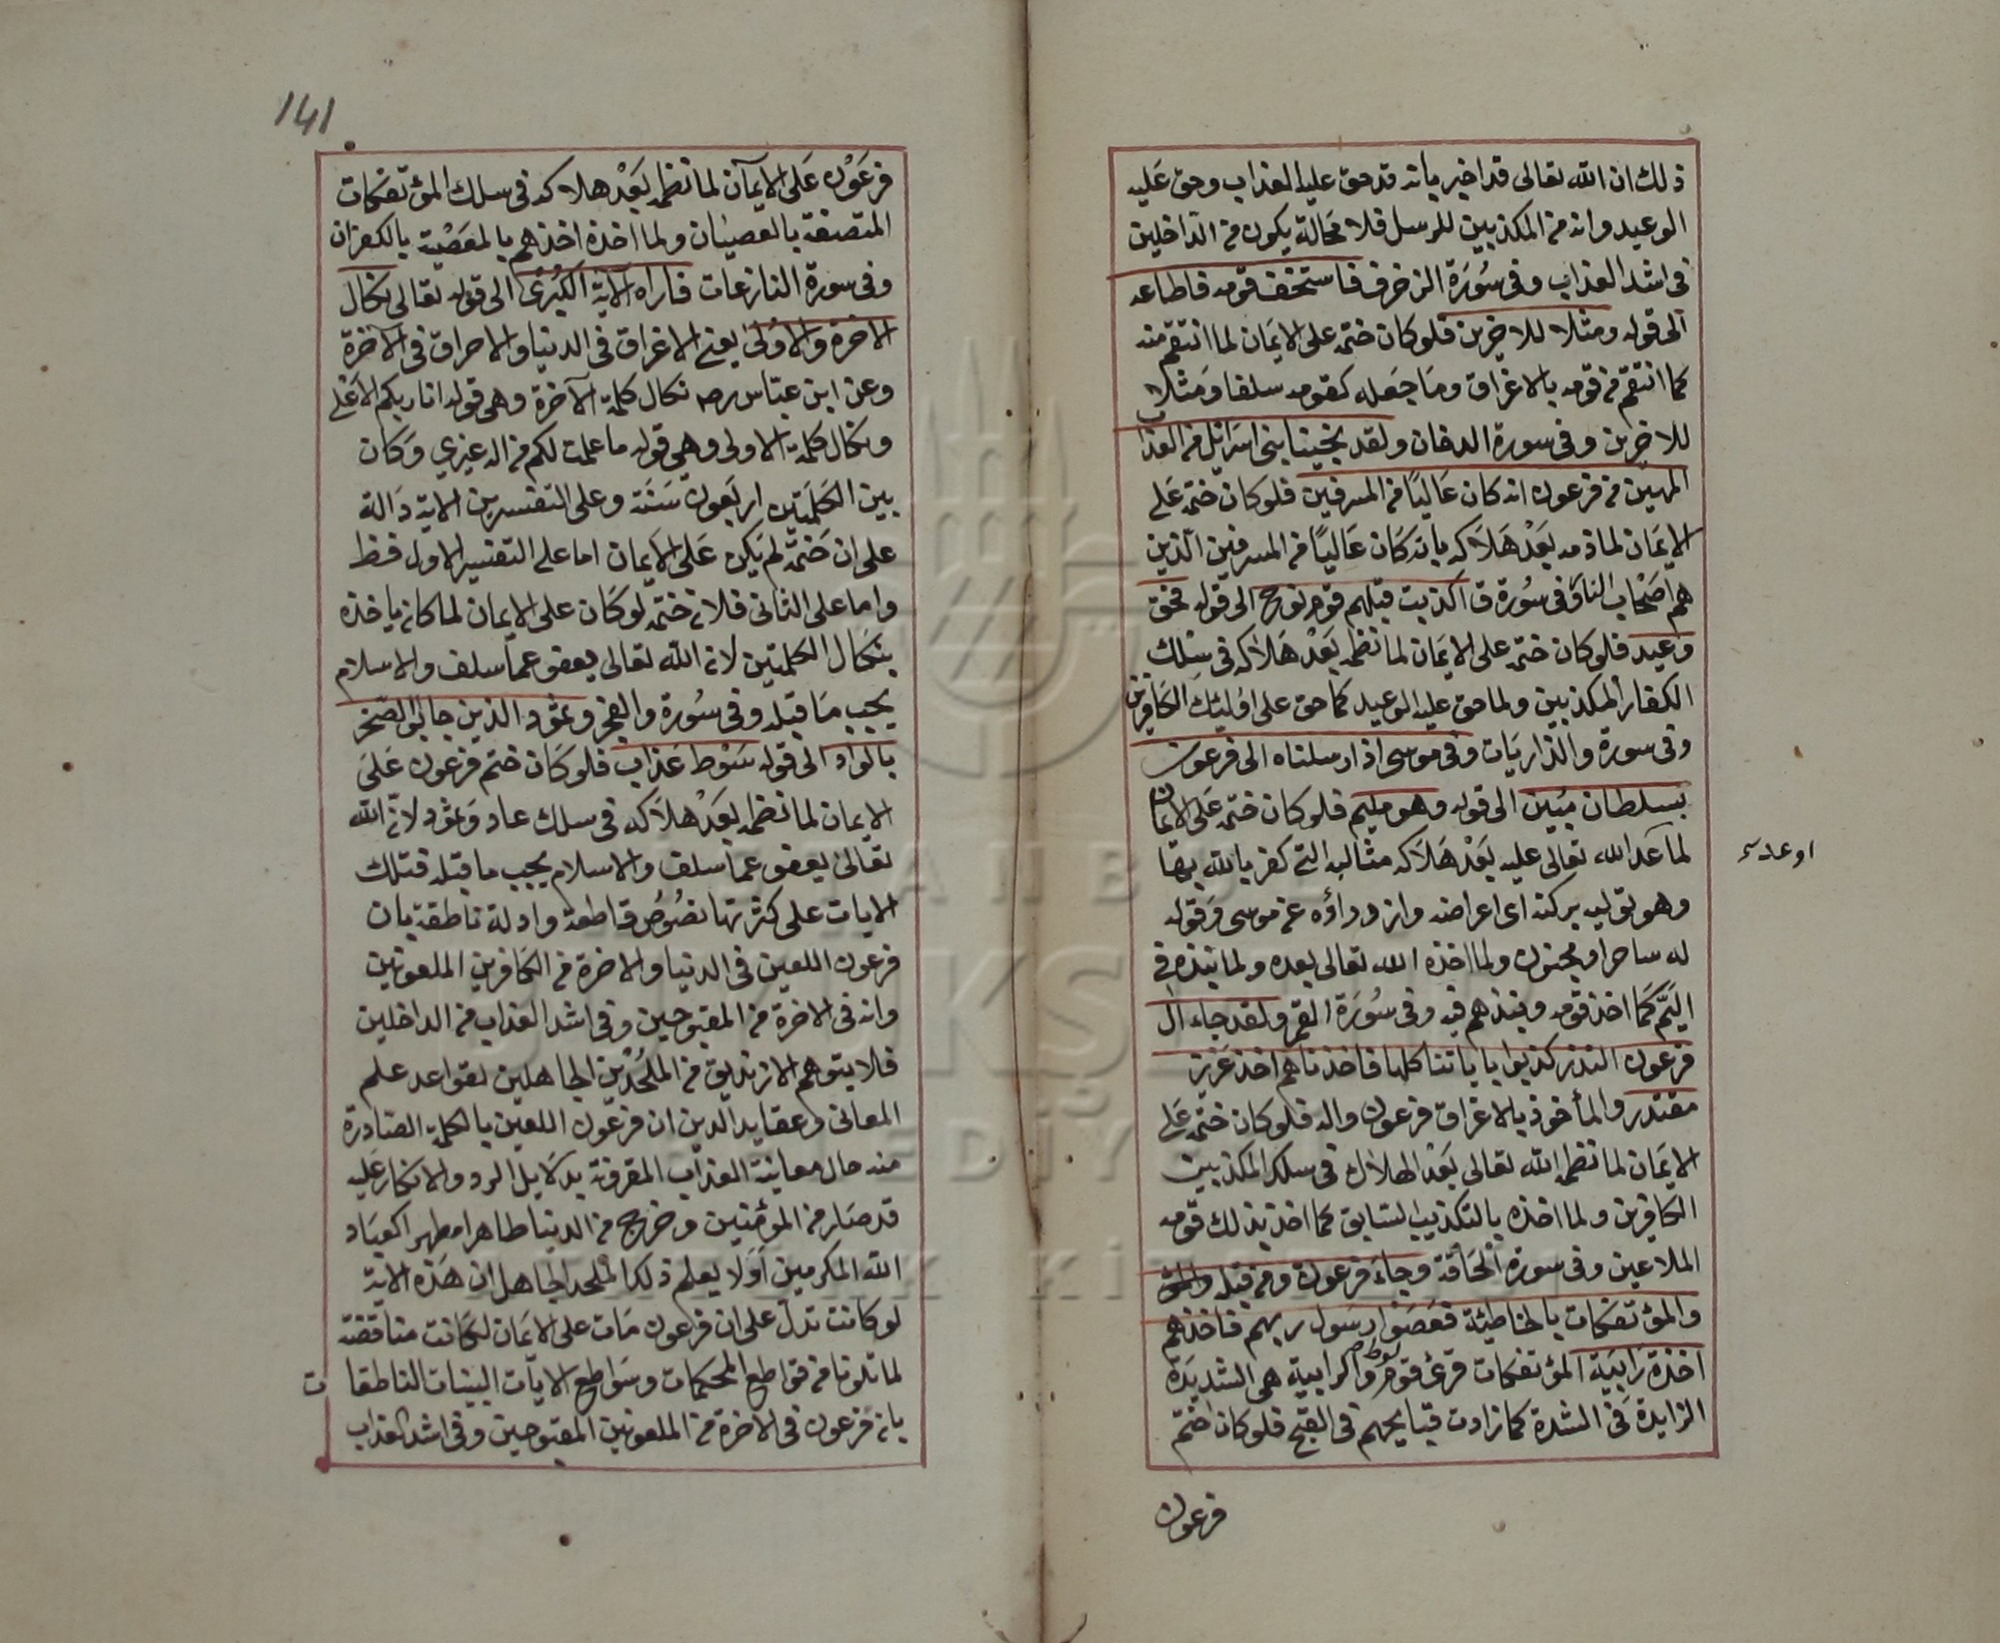 ذلك ان الله تعالى قد اخبر بانه قد حق عليه العذاب وحق عليه
الوعيد وانه من المكذبين للرسل فلا محالة يكون من الداخلين
فى اشد العذاب وفى سورة الزخرف فاستخف قومه فاطاعه
الى قوله ومثلا للاخرين فلو كان ختمه على الايمان لما انتقم منه
كما انتقم من قومه بالاغراق وما جعله كقومه سلفا ومثلا
للاخرين وفى سورة الدخان ولقد نجينا بنى اسرائل من العذاب
المهين من فرعون انه كان عاليًا من المسرفين فلو كان ختمه على
الايمان لما ذمه بعد هلاكه بانه كان عاليًا من المسرفين الذين
هم اصحاب النار وفى سورة ق كذبت قبلهم قوم نوح الى قوله فحق
وعيد فلو كان ختمه على الايمان لما نظمه بعد هلاكه فى سلك
الكفار المكذبين ولما حق عليه الوعيد كما حق على اولئك الكافرين
وفى سورة والذاريات وفى موسى اذ ارسلناه الى فرعون
بسلطان مبين الى قوله وهو مليم فلو كان ختمه على الايمان
لما عد الله تعالى عليه بعد هلاكه مثالبه التى كفر بالله بها
وهو توليه بركنه اى اعراضه وازوراؤه عن موسى وقوله
له ساحر او مجنون ولما اخذه الله تعالى بعده ولما نبذه فى
اليَمّ كما اخذ قومه ونبذهم فيه وفى سورة القمر ولقد جاء ال
فرعون النذر كذبوا باياتنا كلها فاخذناهم اخذ عزيز
مقتدر والمأخوذ بالاغراق فرعون واله فلو كان ختمه على
الايمان لما نظمه الله تعالى بعد الهلاك فى سلك المكذبين
الكافرين ولما اخذه بالتكذيب السابق كما اخذ بذلك قومه
الملاعين وفى سورة الحاقة وجاء فرعون ومن قبله
والمؤتفكات بالخاطئة فعصوا رسول ربهم فاخذهم
اخذة رابية المؤتفكات قرى قوم لوط والرابية هى الشديدة
الزايدة فى الشدة كما زادت قبايحهم فى القبح فلو كان ختم
فرعون
141
فرعون على الايمان لما نظمه بعد هلاكه فى سلك المؤتفكات
المتصفة بالعصيان ولما اخذه اخذهم بالمعصية بالكفران
وفى سورة النازعات فاراه الاية الكبرى الى قوله تعالى نكال
الاخرة والاولى يعنى الاغراق فى الدنيا والاحراق فى الآخرة
وعن ابن عباس رضه نكال كلمة الآخرة وهى قوله انا ربكم الاعلى
ونكال كلمة الاولى وهى قوله ما علمت لكم من اله غيري وكان
بين الكلمتين اربعون سنة وعلى التفسيرين الاية دالة
على ان ختمه لم يكن على الايمان اما على التفسير الاول فظ
واما على الثانى فلان ختمه لو كان على الايمان لما كان ياخذه
بنكال الكلمتين لان الله تعالى يعفو عما سلف والاسلام
يجب ما قبله وفى سورة والفجر وثمود الذين جابوا الصخر
بالواد الى قوله سوط عذاب فلو كان ختم فرعون على
الايمان لما نظمه بعد هلاكه فى سلك عاد وثمود لان الله
تعالى يعفو عما سلف والاسلام يجب ما قبله فتلك
الايات على كثرتها نصوص قاطعة وادلة ناطقة بان
فرعون اللعين فى الدنيا والاخرة من الكافرين الملعونين
وانه فى الاخرة من المقبوحين وفى اشد العذاب من الداخلين
فلا يتوهم الا زنديق من الملحدين الجاهلين لقواعد علم
المعانى وعقايد الدين ان فرعون اللعين بالكلمة الصادرة
منه حال معاينة العذاب المقرونة بدلايل الرد والانكار عليه
قد صار من المؤمنين وخرج من الدنيا طاهرا مطهرا كعباد
الله المكرمين أولا يعلم ذلك الملحد الجاهل ان هذه الاية
لو كانت تدل على ان فرعون مات على الايمان لكانت مناقضة
لما تلونا من قواطع المحكمات وسواطع الايات البينات الناطقات
بان فرعون فى الاخرة من الملعونين المقبوحين وفى اشد العذاب